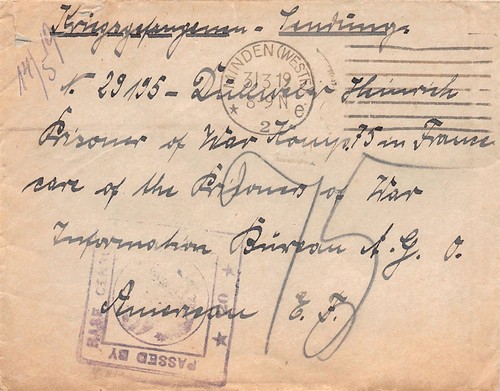 Kriegsgefangenen - Sendung.
14/5 19
MINDEN (WESTF.)
31.3.19
8-9 N
* 2 e
N. 29195 - Heinrich
Prisoner of War Komp. 75 in France
care of the Prisoners of War
Information Büreau A. G. O.
American E. F.
75
PASSED BY
BASE CENSOR